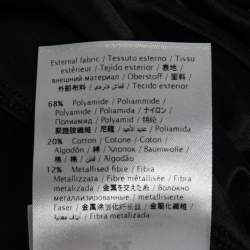 External fabric / Tessuto esterno / Tissu
extérieur / Tejido exterior / 表地 /
внешний материал / Oberstoff / 面料 /
外部布料 / قماش خارجي / Tecido exterior
68% Polyamide / Poliammide /
Polyamide / Poliamida / ナイロン /
Полиамид / Polyamid / 锦纶 /
聚醯胺纖維 / نايلون / Poliamida
20% Cotton / Cotone / Coton /
Algodón / 綿 / Хлопок / Baumwolle /
棉 / 棉 / قطن / Algodão
12% Metallised fibre / Fibra
Metallizzata / Fibre métallisée / Fibra
metalizada / 金属を含む糸 / Волокно
металлизированные / metallisierte
Faser / 金属涂层盖仿纤长丝 / 金屬化纖維
/ الياف معدنية / Fibra metalizada